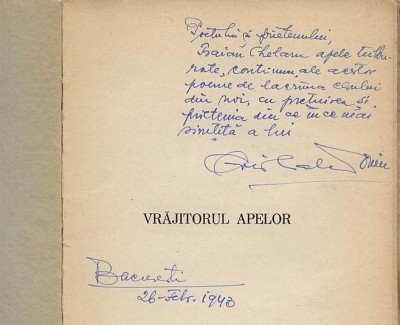 Poetului și prietenului,
Traian Chelaru apele tulbu-
rate, continuu, ale acestor
poeme de lacrima cerului
din noi, cu prețuirea și
prietenia din ce în ce mai
simțită a lui
VRĂJITORUL APELOR
București
26-Febr. 1943